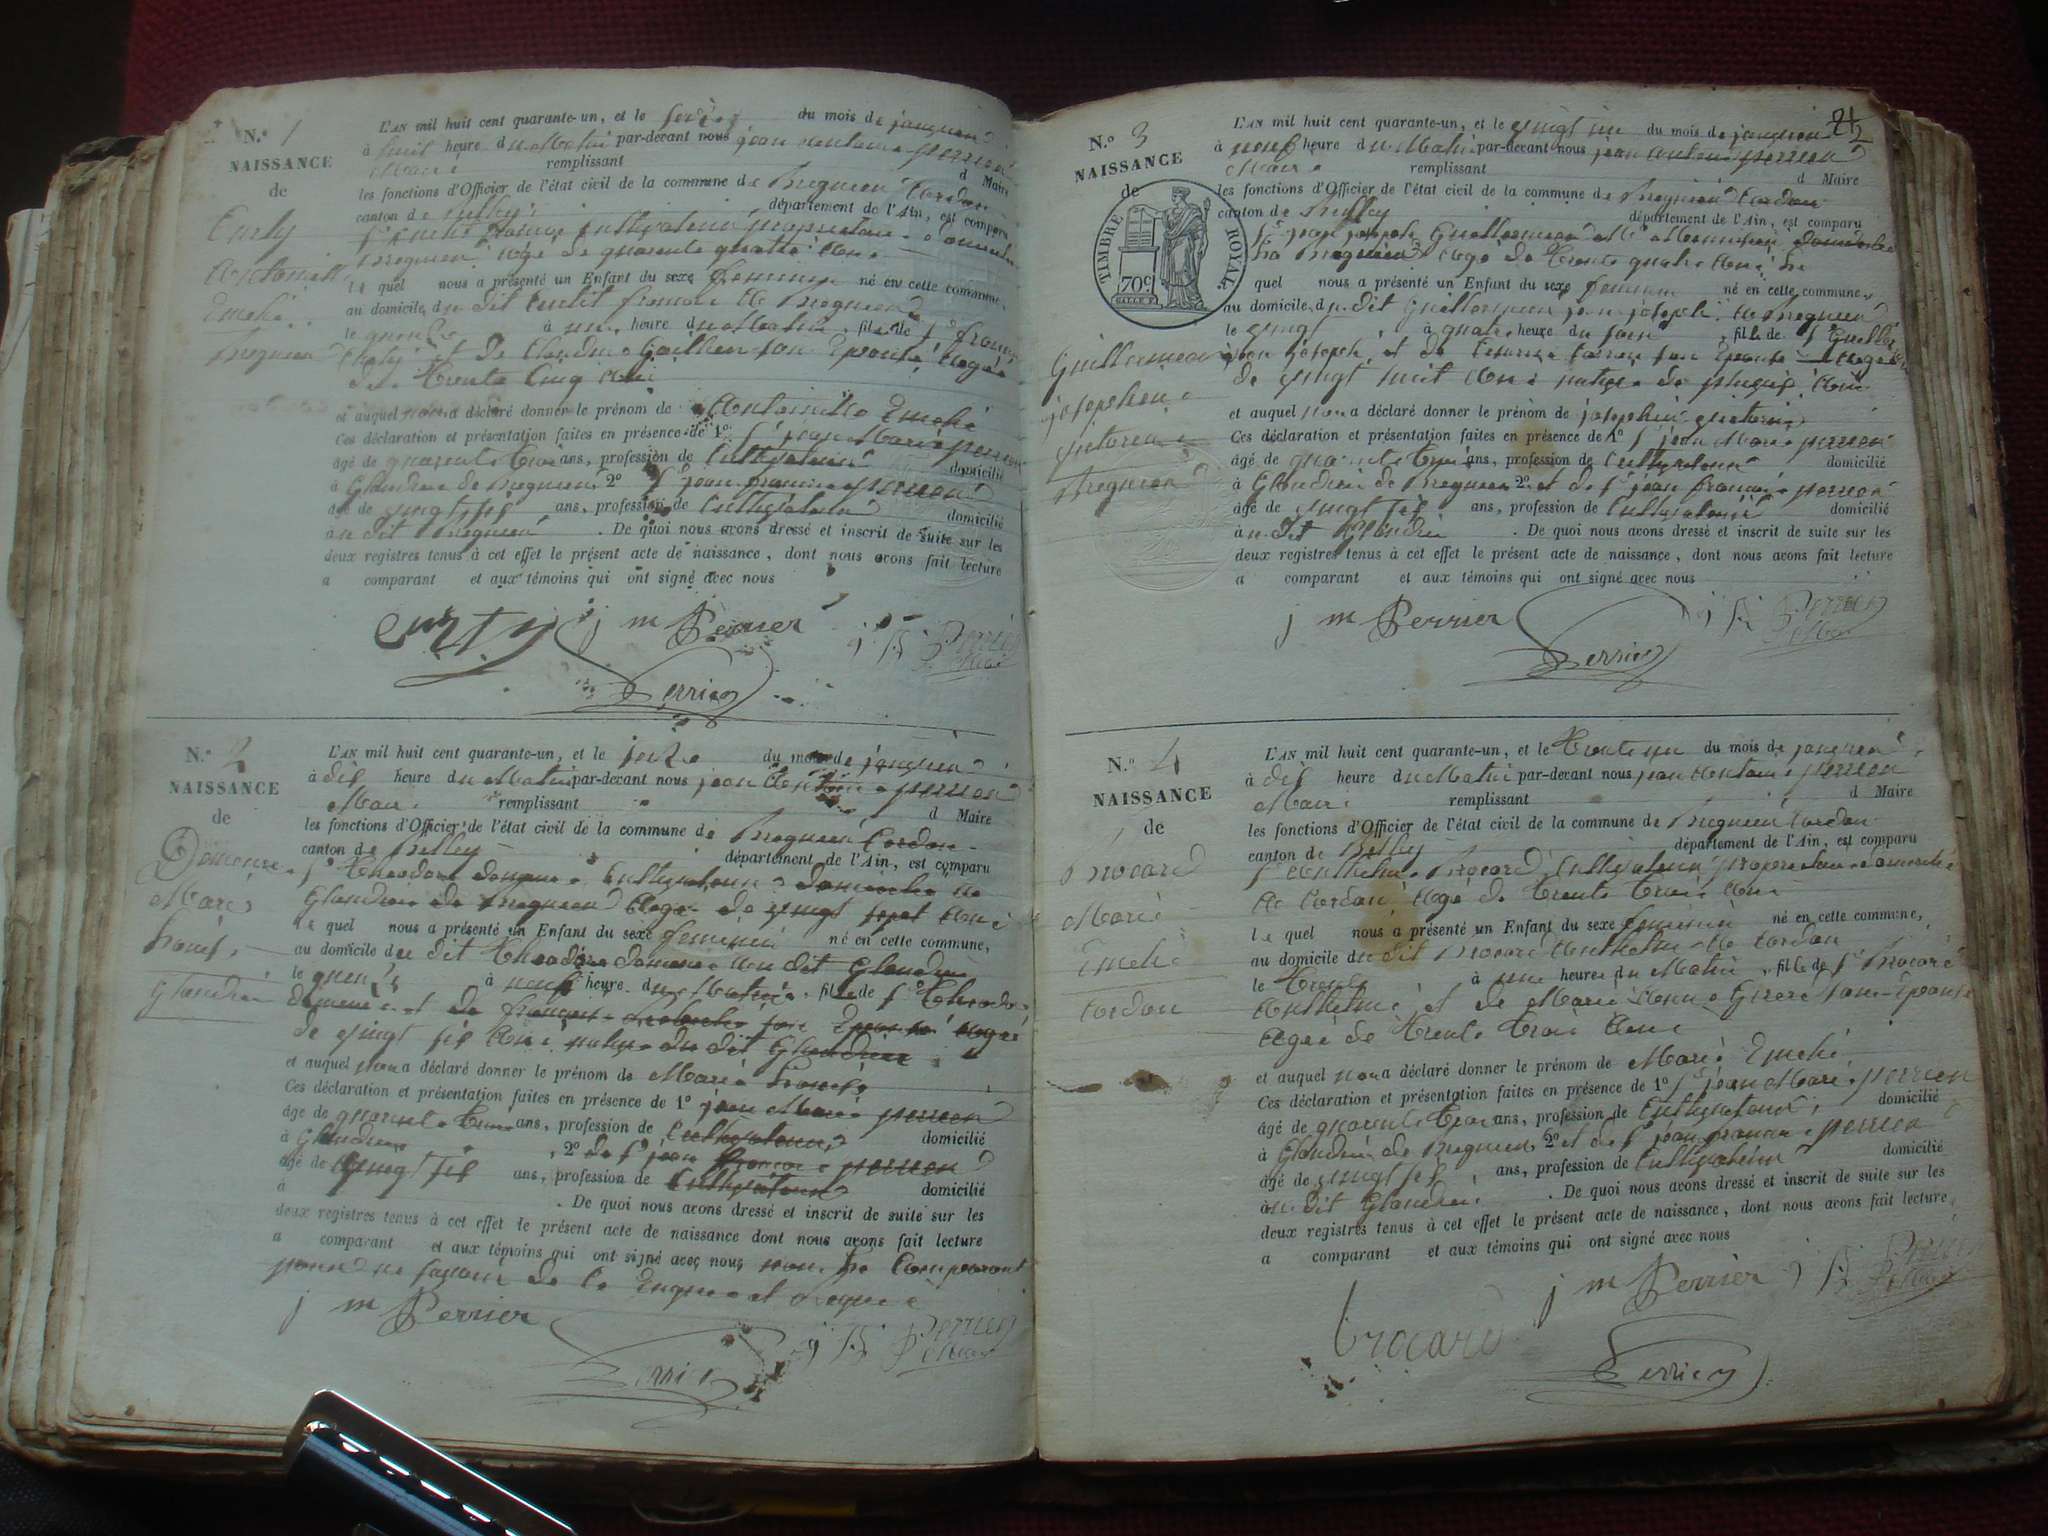 N.º 1
NAISSANCE
de
Curty
Antoinette
Emelie
Bregnier
L'AN mil huit cent quarante-un, et le seize du mois de janvier
à huit heure du Matin par-devant nous jean antoine perrier
Maire remplissant d Maire
les fonctions d'Officier de l'état civil de la commune de Bregnier Cordon
canton de Belley département de l'Ain, est comparu
Bregnier agé de quarante quatre ans
le quel nous a présenté un Enfant du sexe feminin né en cette commune,
au domicile du dit
le quinze à une heure du Matin, fille de Sr
Curty et de Claudine son Epouse agée
de trente cinq ans
et auquel nous a déclaré donner le prénom de Antoinette Emelie
Ces déclaration et présentation faites en présence de 1º Sr jean Marie perrier
âgé de quarante trois ans, profession de Cultivateur domicilié
à Glandieu de Bregnier 2º Sr jean francois perrier
âgé de vingt six ans, profession de Cultivateur domicilié
au dit Bregnier . De quoi nous avons dressé et inscrit de suite sur les
deux registres tenus à cet effet le présent acte de naissance, dont nous avons fait lecture
a comparant et aux témoins qui ont signé avec nous
Curty j m Perrier j f Perrier
Perrier
N.º 2
NAISSANCE
de
Domenne
Marie
Glandieu
L'AN mil huit cent quarante-un, et le seize du mois de janvier
à dix heure du Matin par-devant nous jean Antoine perrier
Maire remplissant d Maire
les fonctions d'Officier de l'état civil de la commune de Bregnier Cordon
canton de Belley département de l'Ain, est comparu
Sr Theodore Cultivateur domicilié a
Glandieu de Bregnier agé de vingt sept ans
le quel nous a présenté un Enfant du sexe feminin né en cette commune,
au domicile du dit Theodore au dit Glandieu
le quinze à neuf heure du Matin, fille de Sr Theodore
et de son Epouse agée
de vingt six ans native du dit Glandieu
et auquel nous a déclaré donner le prénom de Marie
Ces déclaration et présentation faites en présence de 1º jean Marie perrier
âgé de quarante trois ans, profession de Cultivateur domicilié
à Glandieu, 2º de Sr jean francois perrier
âgé de vingt six ans, profession de Cultivateur domicilié
à . De quoi nous avons dressé et inscrit de suite sur les
deux registres tenus à cet effet le présent acte de naissance dont nous avons fait lecture
a comparant et aux témoins qui ont signé avec nous non le Comparant
pour ne savoir de ce Enquis et Requis
j m Perrier j f Perrier
Perrier
21
2
N.º 3
NAISSANCE
de
TIMBRE ROYAL
70c
Guillermeau
josephine
victorine
Bregnier
L'AN mil huit cent quarante-un, et le vingt un du mois de janvier
à neuf heure du Matin par-devant nous jean antoine perrier
Maire remplissant d Maire
les fonctions d'Officier de l'état civil de la commune de Bregnier Cordon
canton de Belley département de l'Ain, est comparu
Sr jean joseph domicilié
a Bregnier agé de trente quatre ans le
quel nous a présenté un Enfant du sexe feminin né en cette commune,
au domicile du dit jean joseph a Bregnier
le vingt, à quatre heure du soir, fille de Sr
jean joseph et de son Epouse agée
de vingt huit ans native de
et auquel nous a déclaré donner le prénom de josephine victorine
Ces déclaration et présentation faites en présence de 1º Sr jean Marie perrier
âgé de quarante trois ans, profession de Cultivateur domicilié
à Glandieu de Bregnier 2º et de Sr jean francois perrier
âgé de vingt six ans, profession de Cultivateur domicilié
au dit Glandieu . De quoi nous avons dressé et inscrit de suite sur les
deux registres tenus à cet effet le présent acte de naissance, dont nous avons fait lecture
a comparant et aux témoins qui ont signé avec nous
j m Perrier j f Perrier
Perrier
N.º 4
NAISSANCE
de
Brocard
Marie
Emelie
Cordon
L'AN mil huit cent quarante-un, et le trente un du mois de janvier
à dix heure du Matin par-devant nous jean Antoine perrier
Maire remplissant d Maire
les fonctions d'Officier de l'état civil de la commune de Bregnier Cordon
canton de Belley département de l'Ain, est comparu
Sr Anthelme Brocard Cultivateur proprietaire domicilié
a Cordon agé de trente trois ans
le quel nous a présenté un Enfant du sexe feminin né en cette commune,
au domicile du dit Brocard Anthelme a Cordon
le trente à une heure du Matin, fille de Sr Brocard
Anthelme et de Marie son Epouse
agée de trente trois ans
et auquel nous a déclaré donner le prénom de Marie Emelie
Ces déclaration et présentation faites en présence de 1º Sr jean Marie perrier
âgé de quarante trois ans, profession de Cultivateur domicilié
à Glandieu de Bregnier 2º et de Sr jean francois perrier
âgé de vingt six, ans, profession de Cultivateur domicilié
au dit Glandieu . De quoi nous avons dressé et inscrit de suite sur les
deux registres tenus à cet effet le présent acte de naissance, dont nous avons fait lecture
a comparant et aux témoins qui ont signé avec nous
j m Perrier j f Perrier
brocard
Perrier